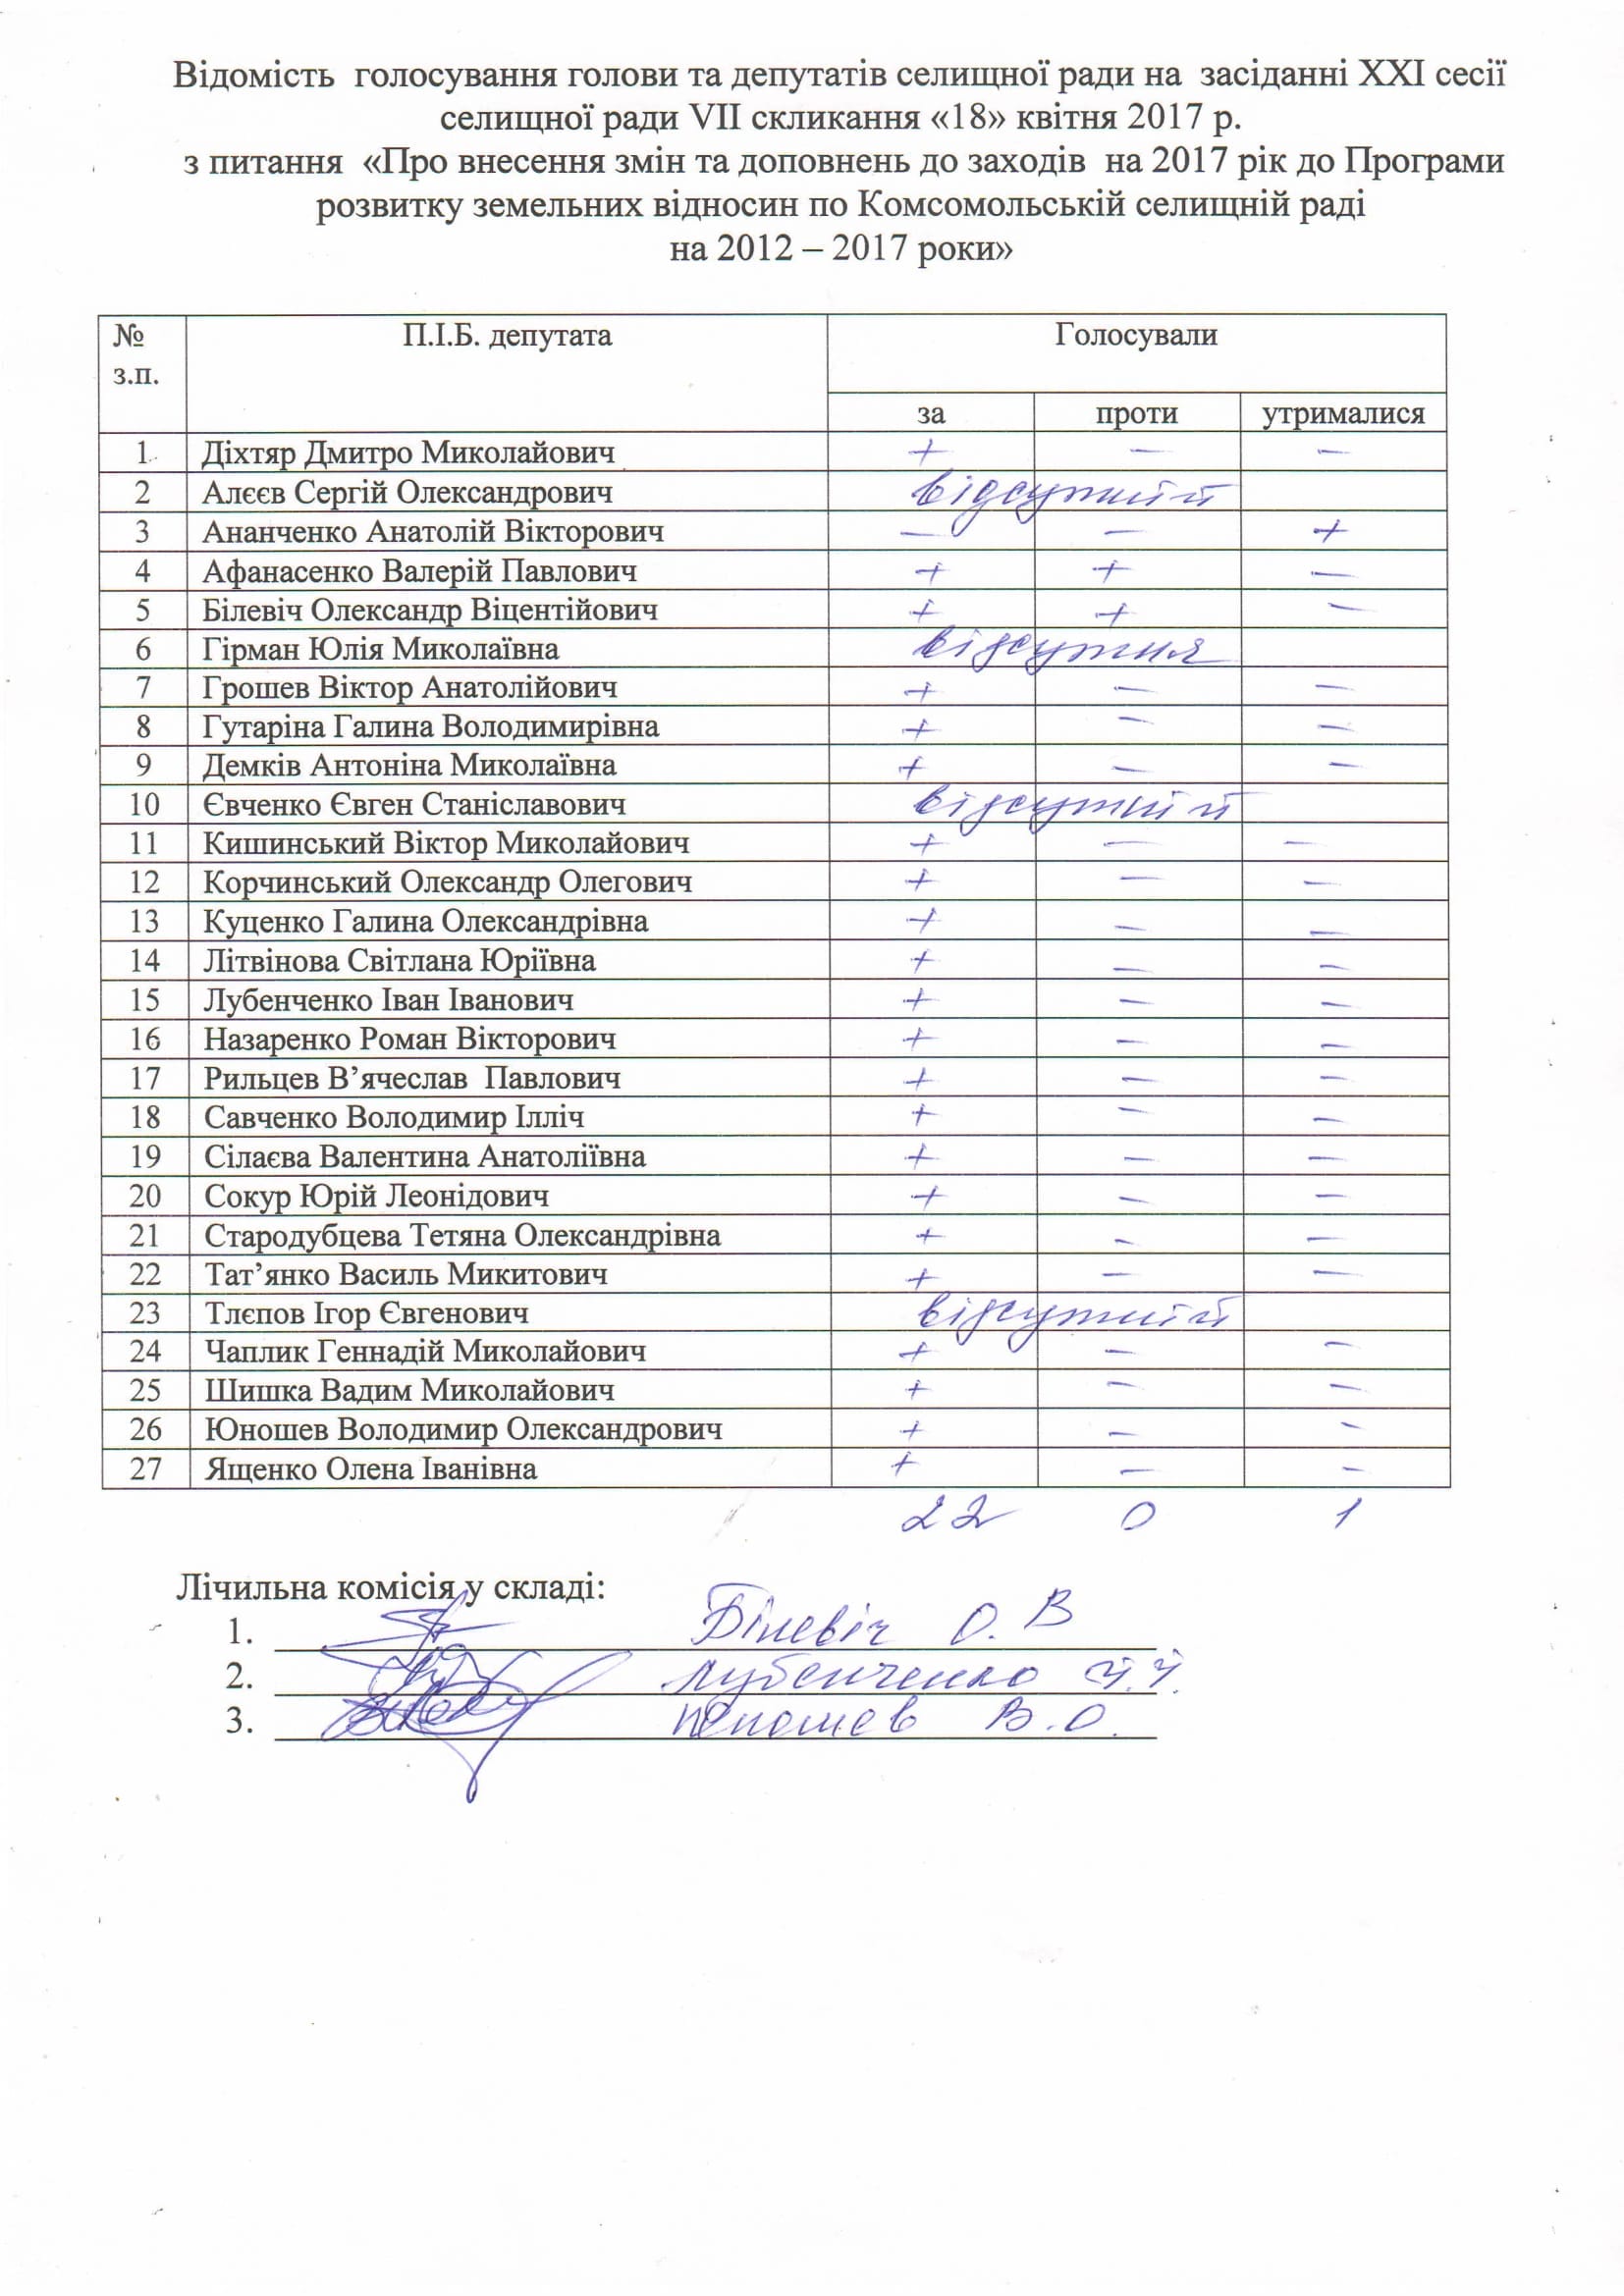 Відомість голосування голови та депутатів селищної ради на засіданні XXI сесії
селищної ради VII скликання «18» квітня 2017 р.
з питання «Про внесення змін та доповнень до заходів на 2017 рік до Програми
розвитку земельних відносин по Комсомольській селищній раді
на 2012 – 2017 роки»
№ з.п. П.І.Б. депутата Голосували
за проти утрималися
1 Діхтяр Дмитро Миколайович + – –
2 Алєєв Сергій Олександрович відсутній
3 Ананченко Анатолій Вікторович – – +
4 Афанасенко Валерій Павлович + + –
5 Білевіч Олександр Віцентійович + + –
6 Гірман Юлія Миколаївна відсутня
7 Грошев Віктор Анатолійович + – –
8 Гутаріна Галина Володимирівна + – –
9 Демків Антоніна Миколаївна + – –
10 Євченко Євген Станіславович відсутній
11 Кишинський Віктор Миколайович + – –
12 Корчинський Олександр Олегович + – –
13 Куценко Галина Олександрівна + – –
14 Літвінова Світлана Юріївна + – –
15 Лубенченко Іван Іванович + – –
16 Назаренко Роман Вікторович + – –
17 Рильцев В’ячеслав Павлович + – –
18 Савченко Володимир Ілліч + – –
19 Сілаєва Валентина Анатоліївна + – –
20 Сокур Юрій Леонідович + – –
21 Стародубцева Тетяна Олександрівна + – –
22 Тат’янко Василь Микитович + – –
23 Тлєпов Ігор Євгенович відсутній
24 Чаплик Геннадій Миколайович + – –
25 Шишка Вадим Миколайович + – –
26 Юношев Володимир Олександрович + – –
27 Ященко Олена Іванівна + – –
22 0 1
Лічильна комісія у складі:
1. Білевіч О. В
2. Лубенченко І.І.
3. Юношев В.О.